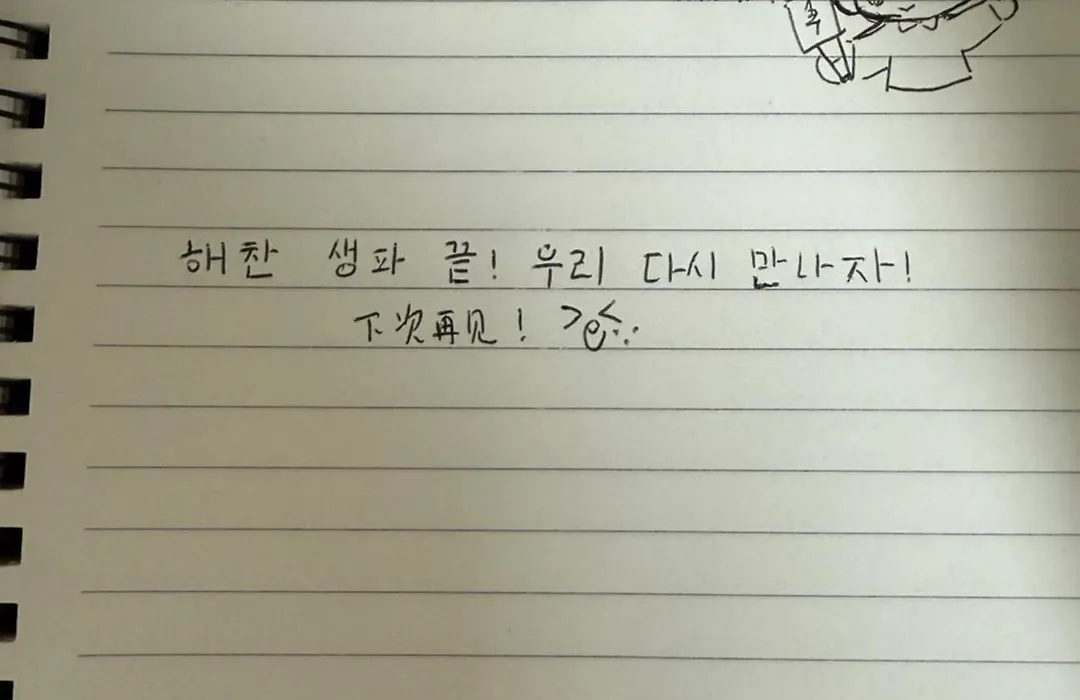 해찬 생파 끝! 우리 다시 만나자!
下次再见!